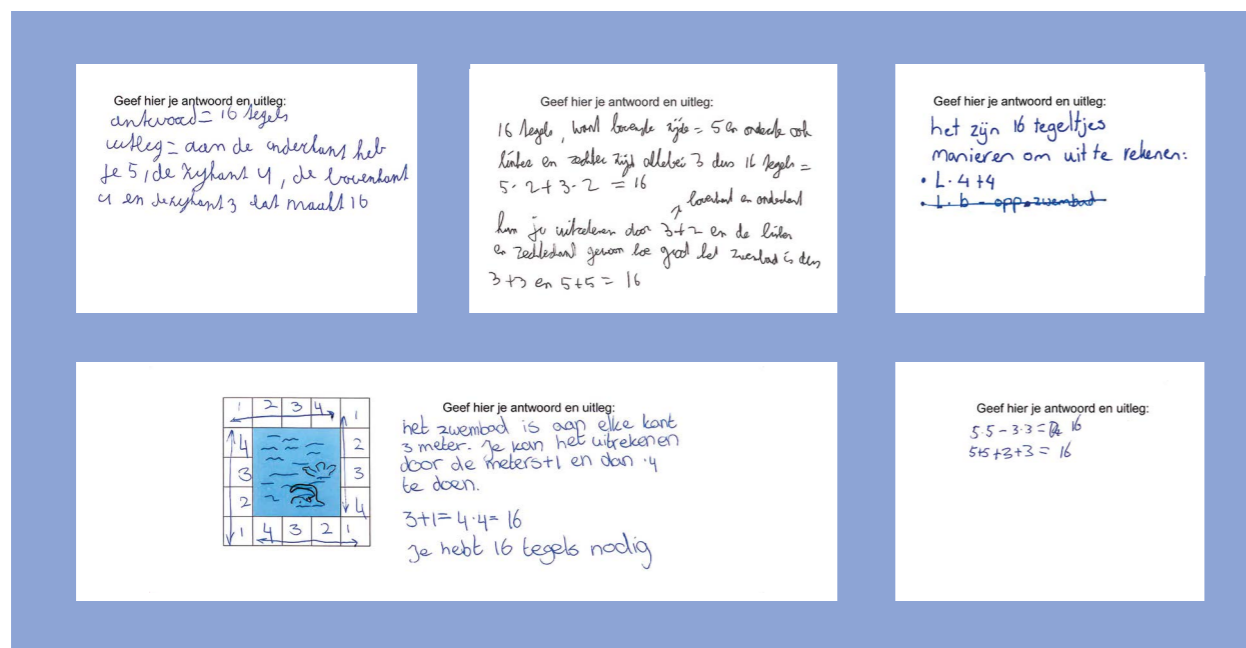 Geef hier je antwoord en uitleg:
antwoord = 16 tegels
uitleg = aan de onderkant heb
je 5, de zijkant 4, de bovenkant
4 en de zijkant 3 dat maakt 16
Geef hier je antwoord en uitleg:
16 tegels, want bovenste zijde = 5 en onderste ook
linker en rechter zijd allebei 3 dus 16 tegels =
5 · 2 + 3 · 2 = 16
bovenkant en onderkant
kun je uitrekenen door 3+2 en de linker
en rechterkant gewoon hoe groot het zwembad is dus
3+3 en 5+5 = 16
Geef hier je antwoord en uitleg:
het zijn 16 tegeltjes
manieren om uit te rekenen:
• L · 4 + 4
• L · b - opp. zwembad
1 2 3 4 1
4 2
3 3
2 4
1 4 3 2 1
Geef hier je antwoord en uitleg:
het zwembad is aan elke kant
3 meter. Je kan het uitrekenen
door de meters+1 en dan ·4
te doen.
3+1=4·4= 16
Je hebt 16 tegels nodig
Geef hier je antwoord en uitleg:
5·5 - 3·3 = 16
5+5+3+3 = 16